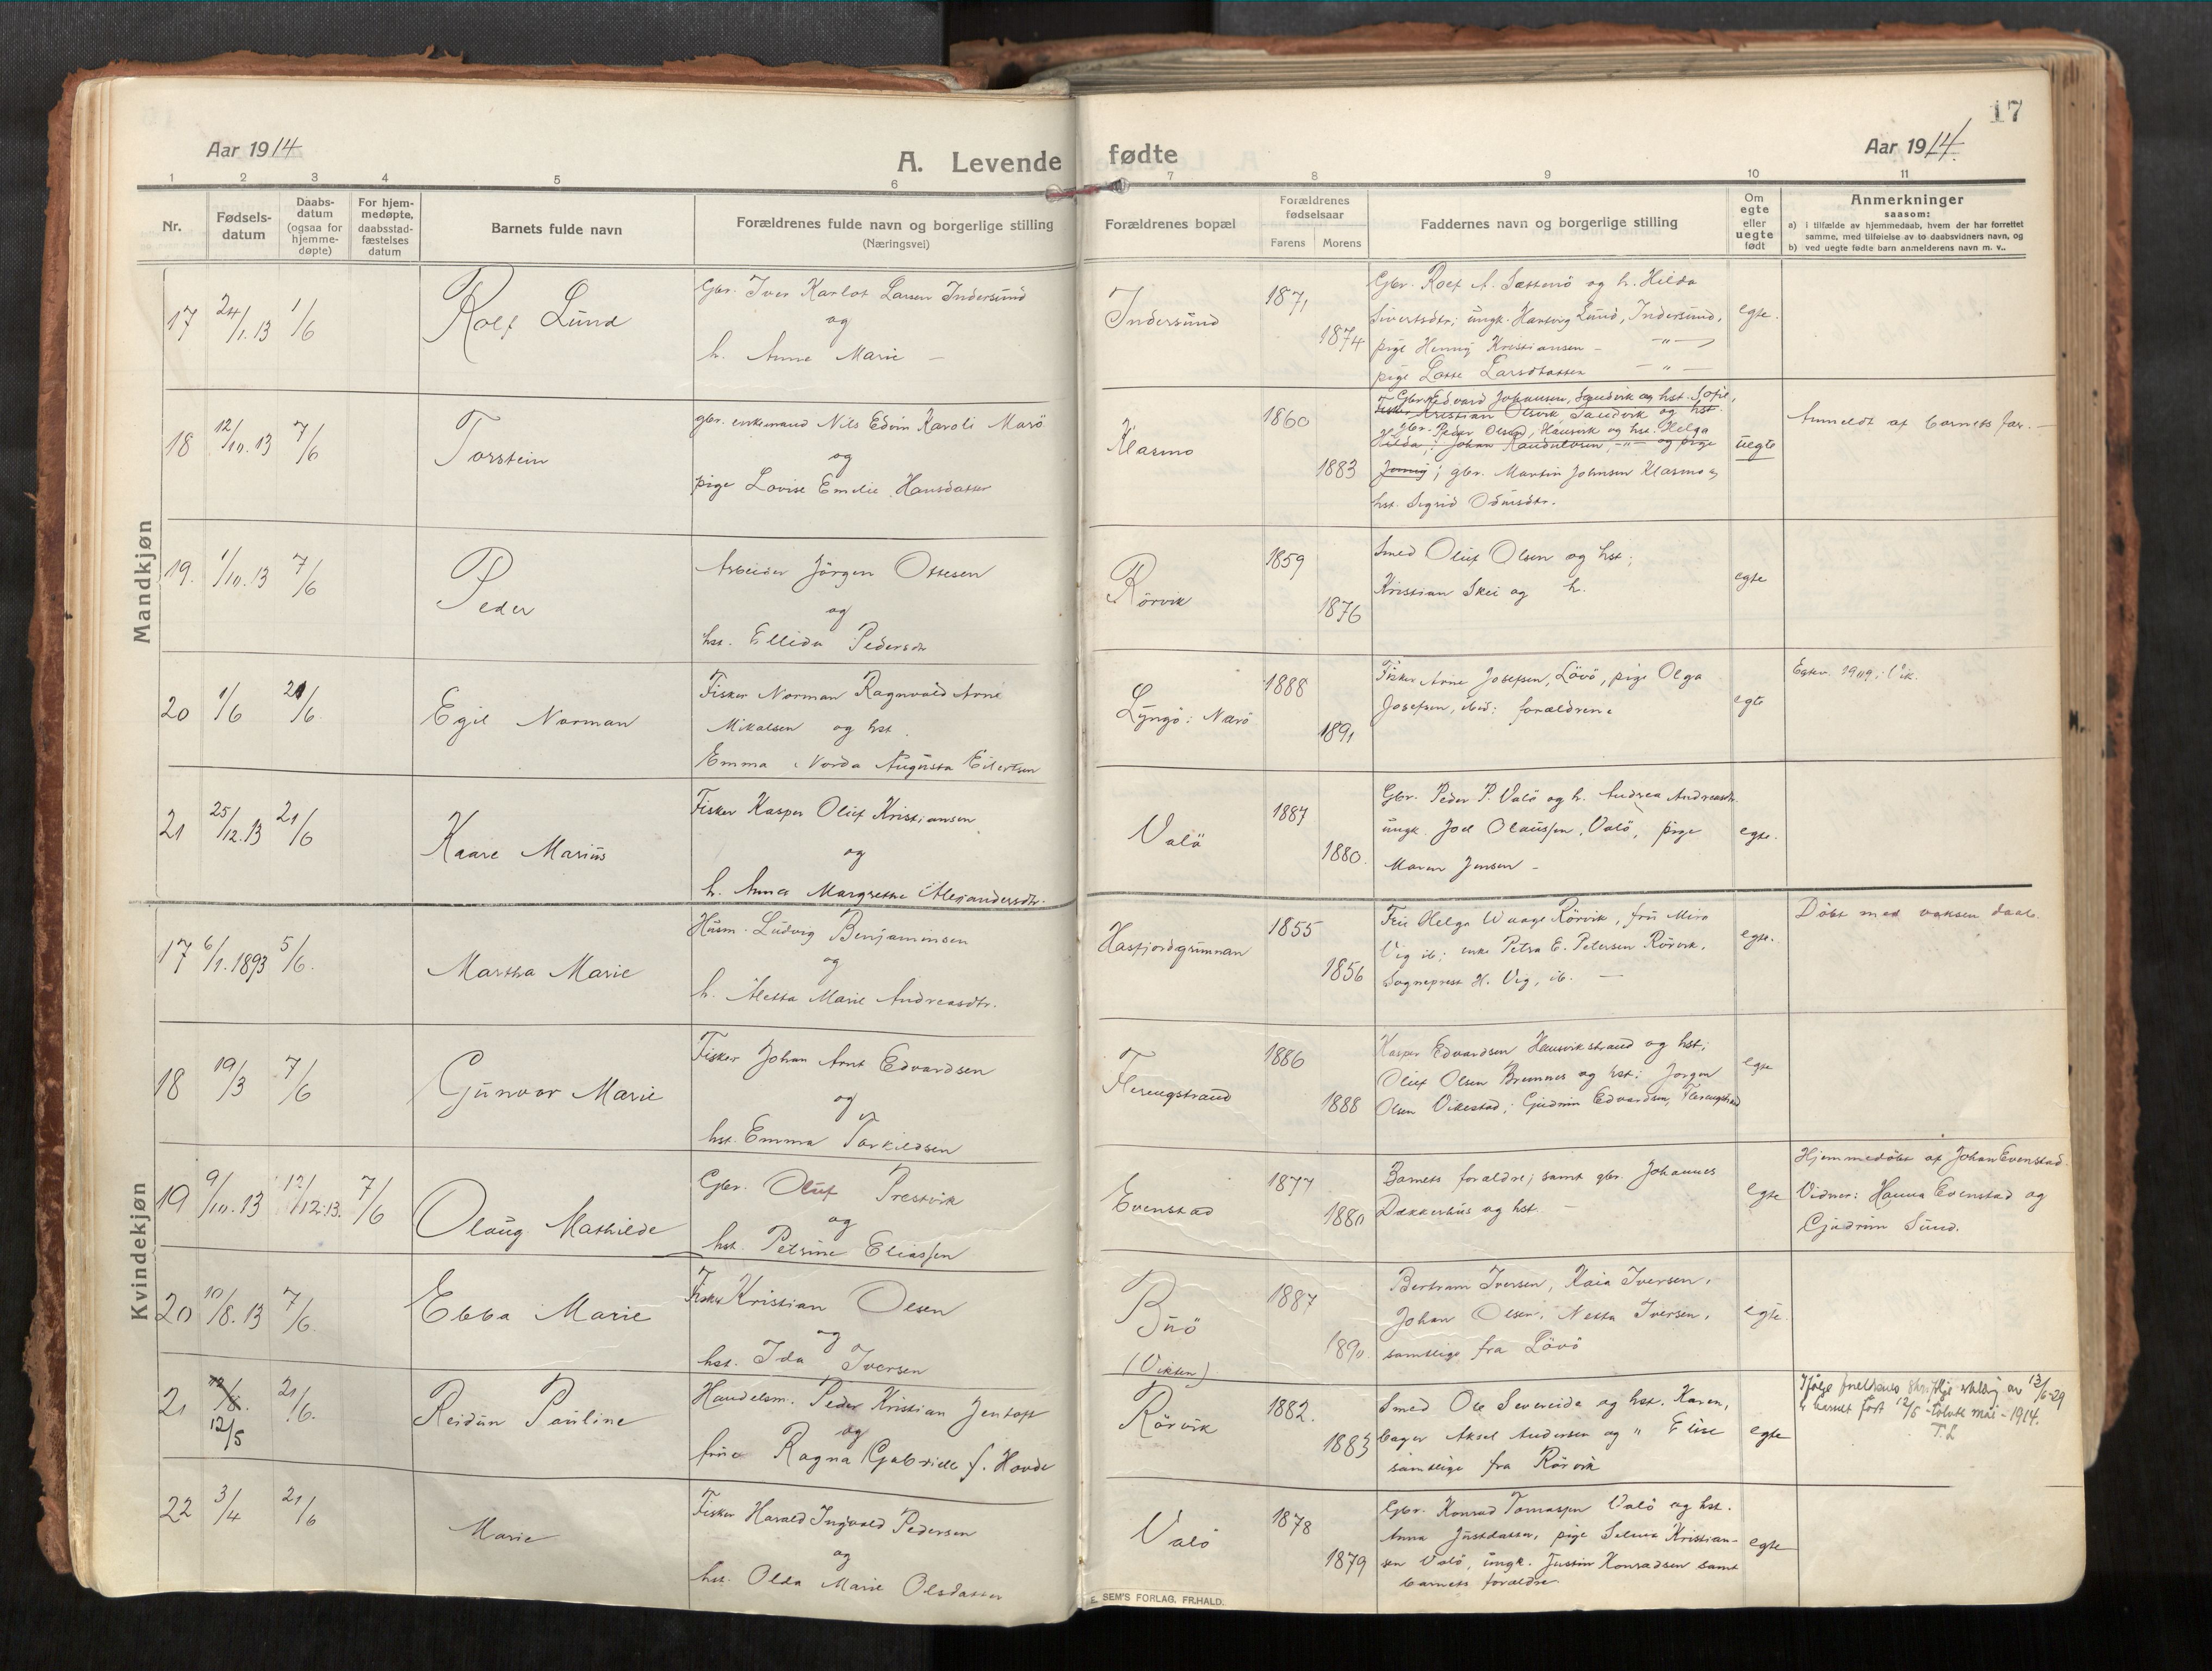 17
Aar 1914
A. Levende fødte
Aar 1914
1 2 3 4 5 6 7 8 9 10 11
Nr.
Fødsels-
datum
Daabs-
datum
(ogsaa for
hjemme-
døpte)
For hjem-
medøpte,
daabsstad-
fæstelses
datum
Barnets fulde navn
Forældrenes fulde navn og borgerlige stilling
(Næringsvei)
Forældrenes bopæl
Forældrenes
fødselsaar
Farens Morens
Faddernes navn og borgerlige stilling
Om
egte
eller
uegte
født
Anmerkninger
saasom:
a) i tilfælde av hjemmedaab, hvem der har forrettet
samme, med tilføielse av to daabsvidners navn, og
b) ved uegte fødte barn anmelderens navn m. v..
Mandkjøn
17 24/1.13 1/6 Rolf Lund
Gbr. Iver Karlot Larsen Indersund
og
h. Anne Marie —
Indersund 1871 1874
Gbr. Rolf A. Sætterö og h. Hilda
Sivertsdtr; ungk. Hartvig Lund, Indersund,
pige Henny Kristiansen - -"-
pige Lotte Larsdatter - " -
egte.
18 12/10.13 7/6 Torstein
gbr. enkemand Nils Edvin Karoli Marö
og
pige Lovise Emelie Hansdatter
Klasmo 1860 1883
Gbr. Edvard Johansen, Sandvik og hst. Sofie,
Fisker Kristian Olsvik Sandvik og hst
gbr. Peder Olsen, Hansvik og hst. Helga
Hilda; Johan Randulvsen -"- og pige
Jenny; gbr. Martin Johnsen Klasmo og
hst. Sigrid Odinsdtr.
uegte
Anmeldt af barnets far. -
19. 1/10.13 7/6 Peder
Arbeider Jörgen Ottesen
og
hst. Ellida Pedersdtr
Rörvik 1859 1876
Smed Oluf Olsen og hst;
Kristian Skei og h.
egte
20 1/6 21/6 Egil Norman
Fisker Norman Ragnvald Arne
Mikalsen og hst.
Emma Norda Augusta Eilertsen
Lyngö: Nærö 1888 1891
Fisker Arne Josefsen, Lövö, pige Olga
Josefsen, ibid: forældrene
egte
Egtev. 1909 i Vik.
21 25/12.13 21/6 Kaare Marius
Fisker Kasper Oluf Kristiansen
og
h. Anna Margrethe Alexandersdtr.
Valö 1887 1880.
Gbr. Peder P. Valö og h. Andrea Andreasdtr.
ungk. Joel Olaussen, Valö, pige
Maren Jensen -
egte.
Kvindekjøn
17 6/1.1893 5/6. Martha Marie
Husm. Ludvig Benjaminsen
og
h. Aletta Marie Andreasdtr.
Hasfjordgrunnan 1855 1856
Fru Helga Waage Rörvik, fru Mira
Vig ib; enke Petra E. Petersen Rörvik,
Sogneprest H. Vig, ib. —
egte.
Döbt med voksen daab.
18 19/3 7/6 Gunvor Marie
Fisker Johan Arnt Edvardsen
og
hst. Emma Torkildsen
Flerengstrand 1886 1888
Kasper Edvardsen Hansvikstrand og hst;
Oluf Olsen Bremnes og hst; Jorgen
Olsen Vikestad; Gjudrun Edvardsen, Flerengstrand
egte
19 9/10.13 12/12.13. 7/6 Olaug Mathilde
Gbr. Oluf Prestvik
og
hst. Petrine Eliassen
Evenstad 1877 1880
Barnets forældre; samt gbr. Johannes
Dækkerhus og hst. —
egte
Hjemmedöbt af Johan Evenstad.
Vidner: Hanna Evenstad og
Gjudrun Sund.
20 10/8.13 7/6 Ebba Marie
Fisker Kristian Olsen
og
hst. Ida Iversen
Buö
(Vikten)
1887 1890.
Bertram Iversen, Kaia Iversen,
Johan Olsen, Netta Iversen,
samtlige fra Lövö
egte.
21 12/8. 12/5 21/6. Reidun Pauline
Handelsm. Peder Kristian Jentoft
og
frue Ragna Gabrielle f. Hovde
Rörvik 1882. 1883
Smed Ole Severeide og hst. Karen,
bager Aksel Andersen og " Elise
samtlige fra Rörvik
egte
Ifölge skriftlige av 13/6-29
er barnet födt 12/5 - tolvte mai - 1914.
T.L
22 3/4 21/6 Marie
Fisker Harald Ingvald Pedersen
og
hst. Olda Marie Olsdatter
Valö 1878 1879
Gbr. Konrad Tomassen Valö og hst.
Anna Justdatter, pige Selma Kristian-
sen Valö, ungk. Justin Konradsen samt
barnets forældre.
egte
E. SEM'S FORLAG, FR.HALD.